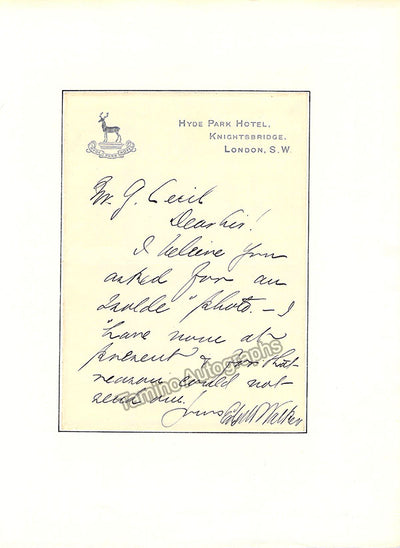 HYDE PARK HOTEL,
KNIGHTSBRIDGE.
LONDON, S.W.
Mr. G. Cecil
Dear Sir!
I believe you
asked for an
"Isolde" photo. – I
have none at
present & for that
reason could not
send one!
Yours Edyth Walker
Tamino Autographs